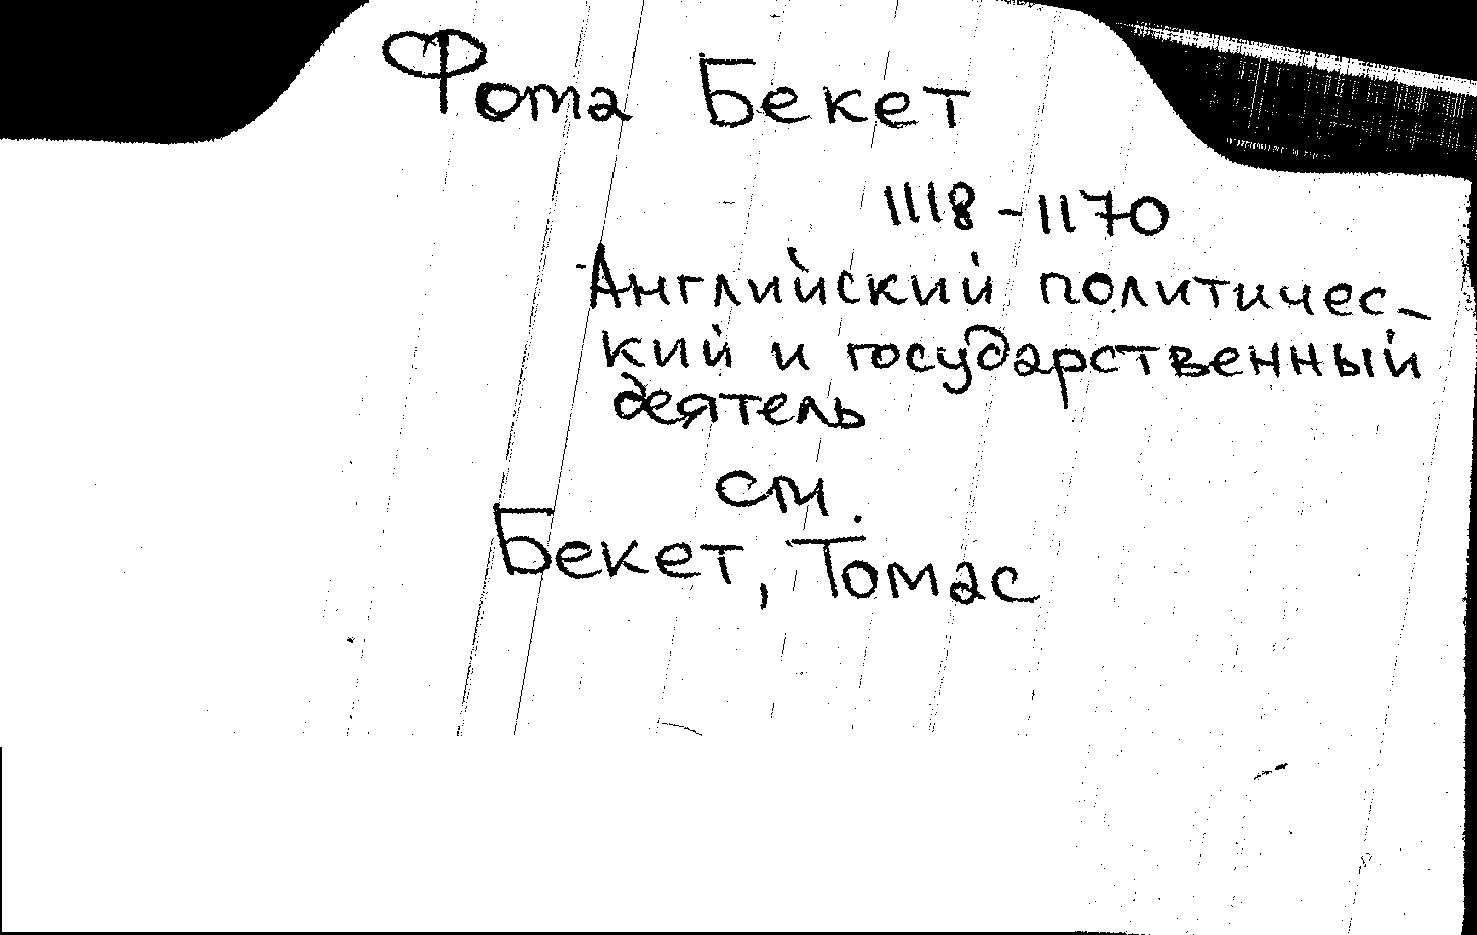 Фома Бекет
1118-1170
Английский политичес-
кий и государственный
деятель
см.
Бекет, Томас